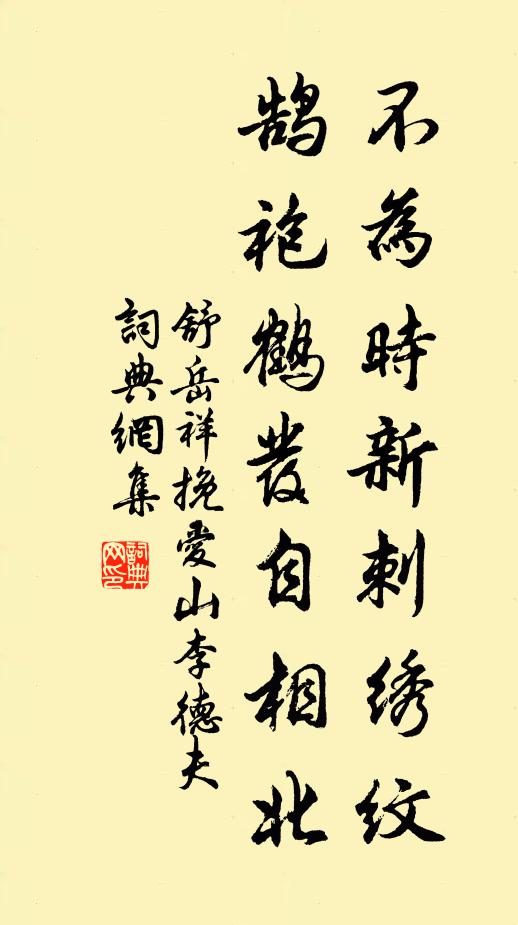 不為時新刺绣紋
鹄袍鶴發自相北
舒岳祥挽愛山李德夫
詞典網集
詞典网印